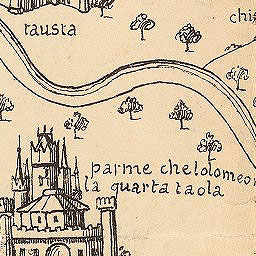 tausta
chis
parme chelolomeon
la quarta taola